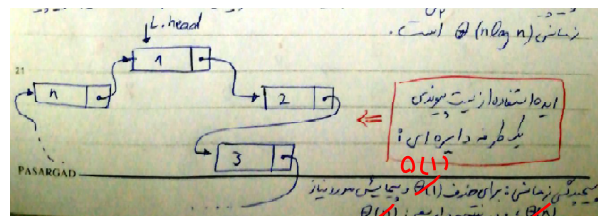 زمانی Θ(n log n) است.
L.head
1
21
n
2
ایده استفاده از لیست پیوندی
یک طرفه دایره ای:
⇐
3
O(1)
PASARGAD
پیچیدگی زمانی: برای حذف Θ(1) و پیمایش مورد نیاز